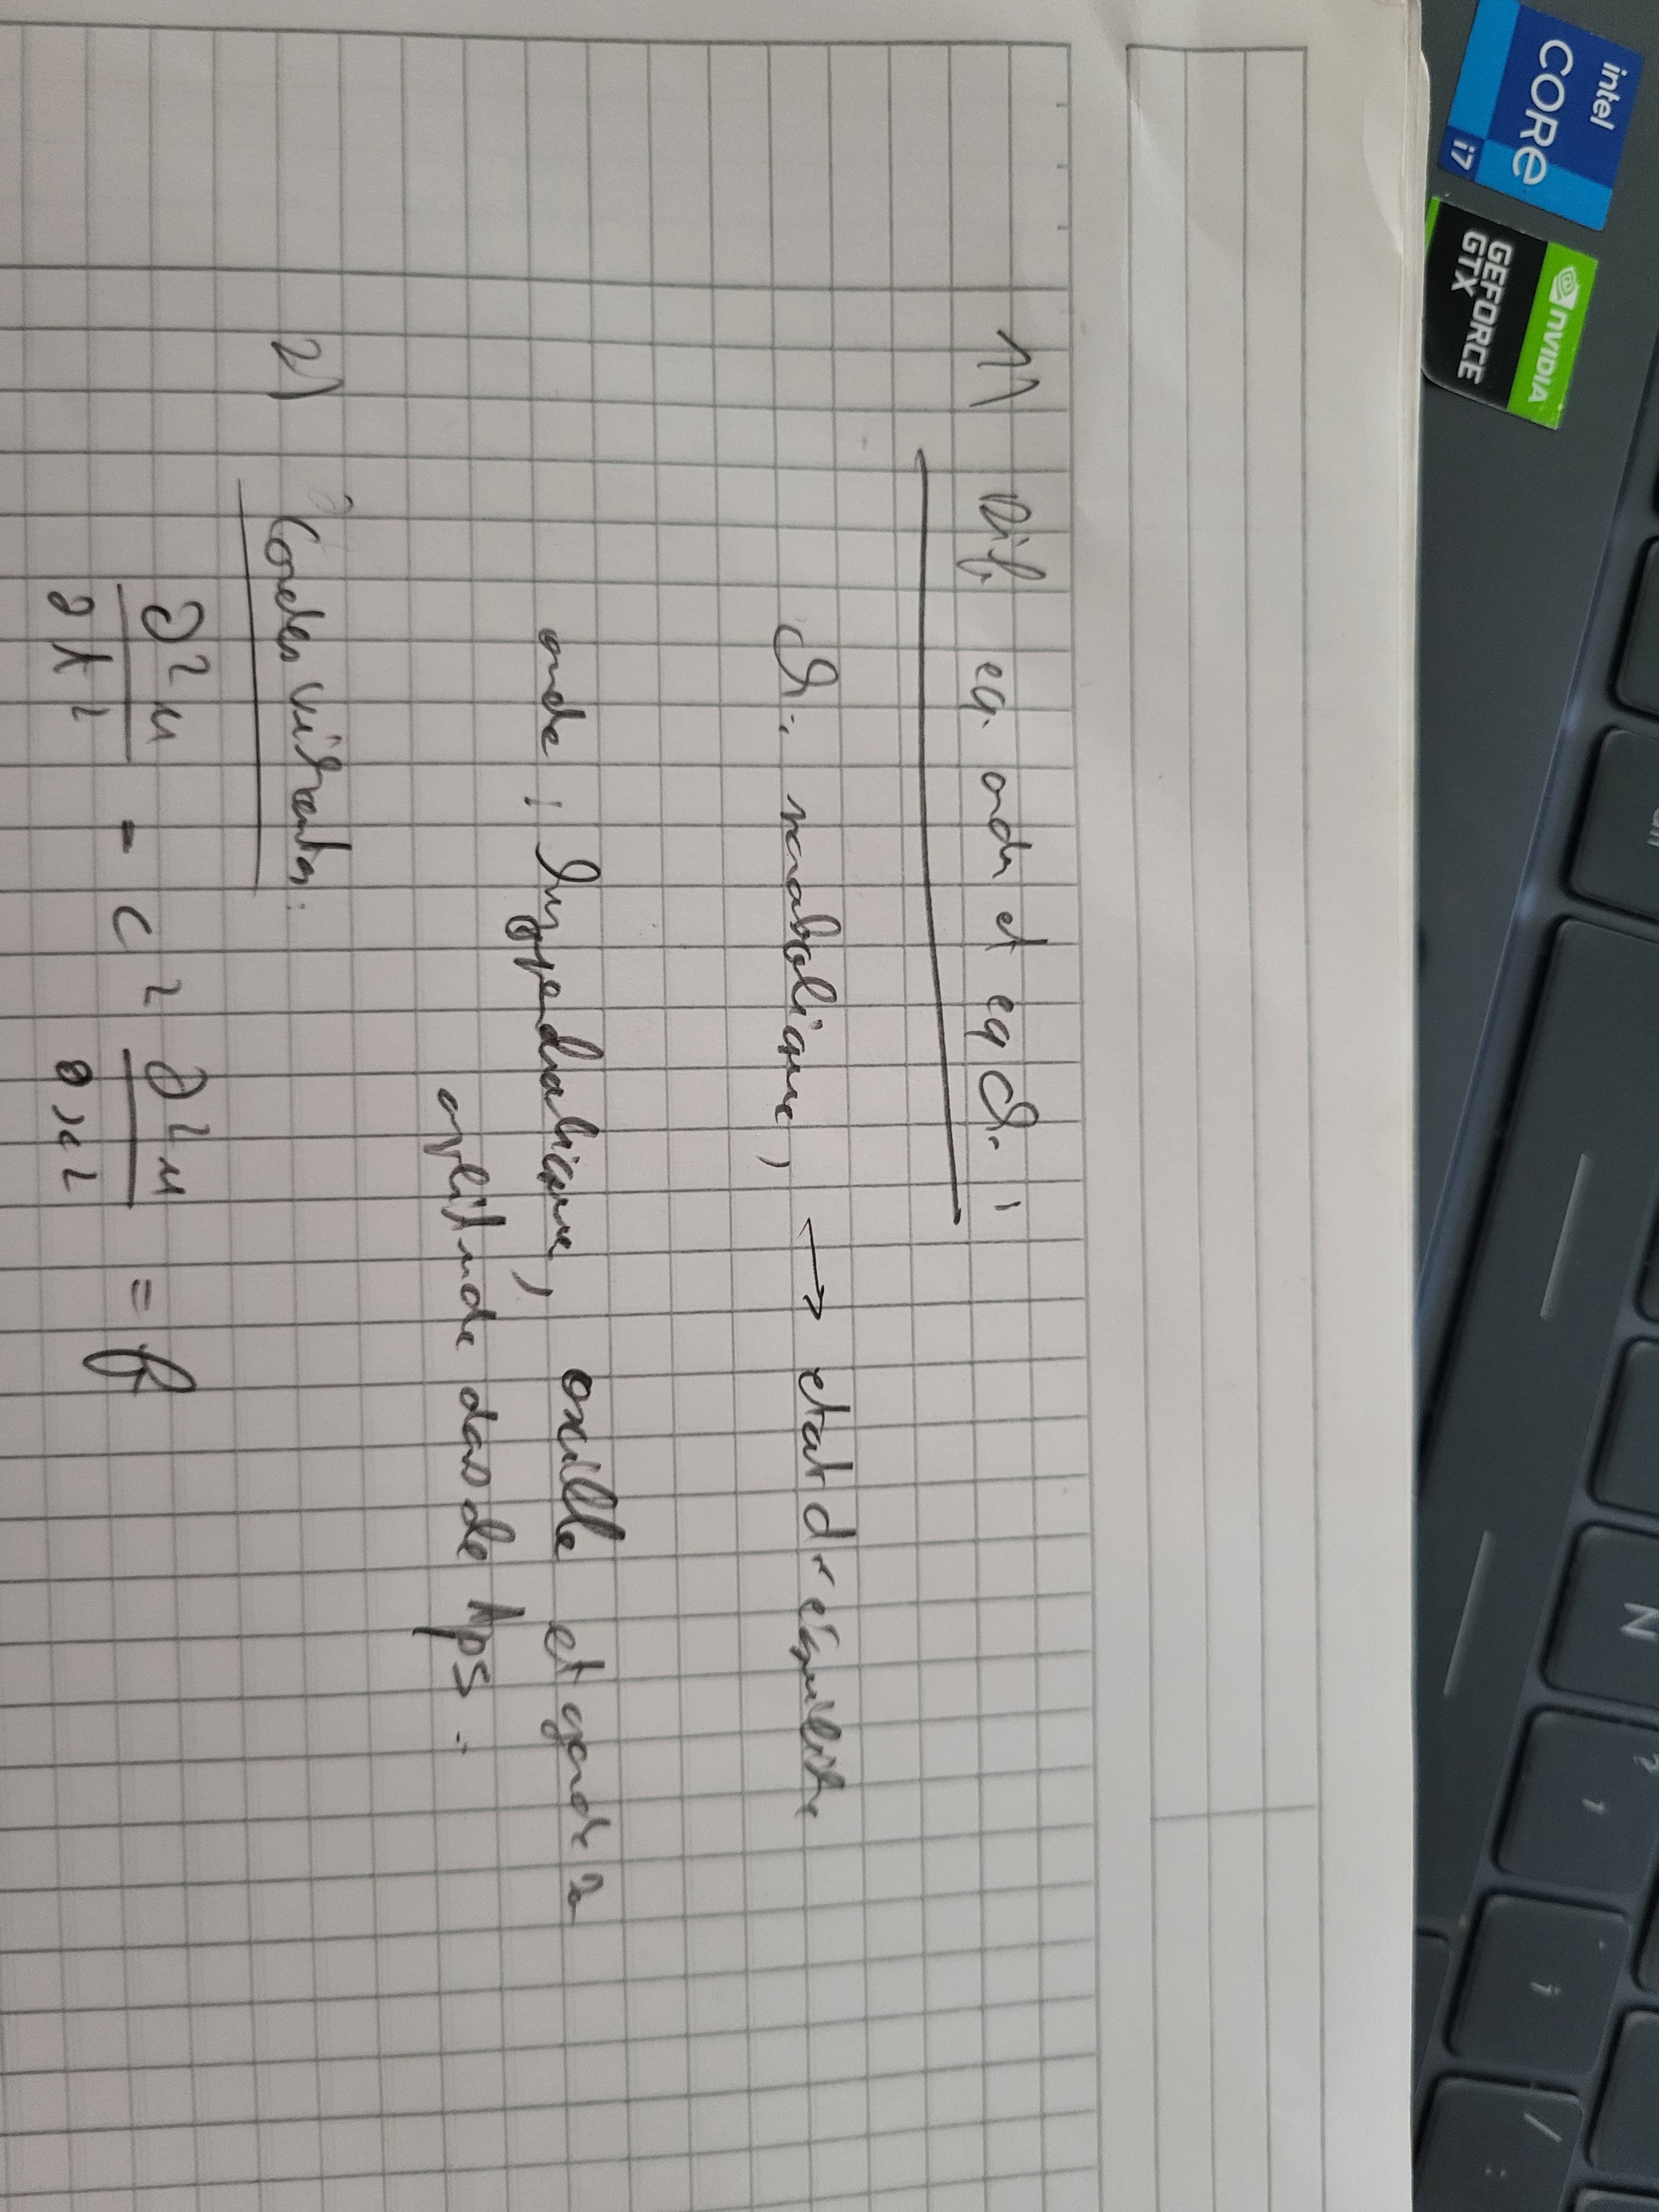 intel
CORe
i7
NVIDIA
GEFORCE
GTX
N
?
,
;
/
:
1) Dif eq. onde et eq Ch. :
Ch. parabolique, → etat d'equilibre
onde : hyperbolique, oscille et garde
amplitude dans le tps.
2) Cordes vibrantes:
∂²u/∂t² - c² ∂²u/∂x² = f